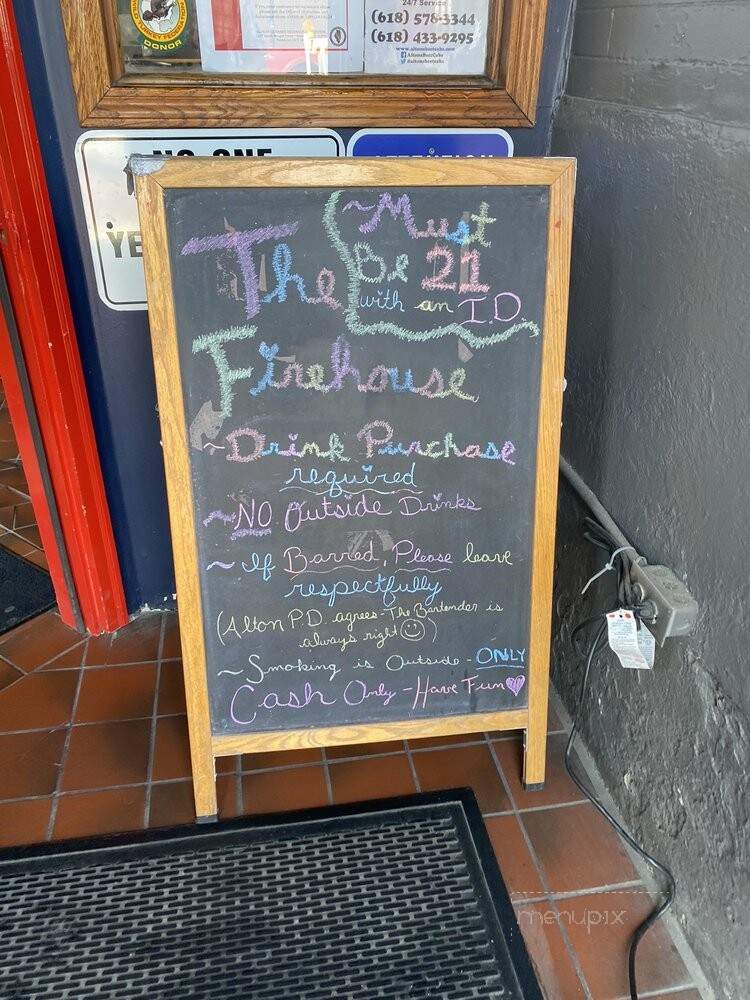 DONOR
24/7 Service
(618) 578-3344
(618) 433-9295
NO ONE
ATTENTION
YE
~Must
Be 21
with an I.D.
The
Firehouse
~Drink Purchase
required
~NO Outside Drinks
~If Barred, Please leave
respectfully
(Alton P.D. agrees-The Bartender is
always right☺)
~Smoking is Outside-ONLY
Cash Only-Have Fun♥
menupix